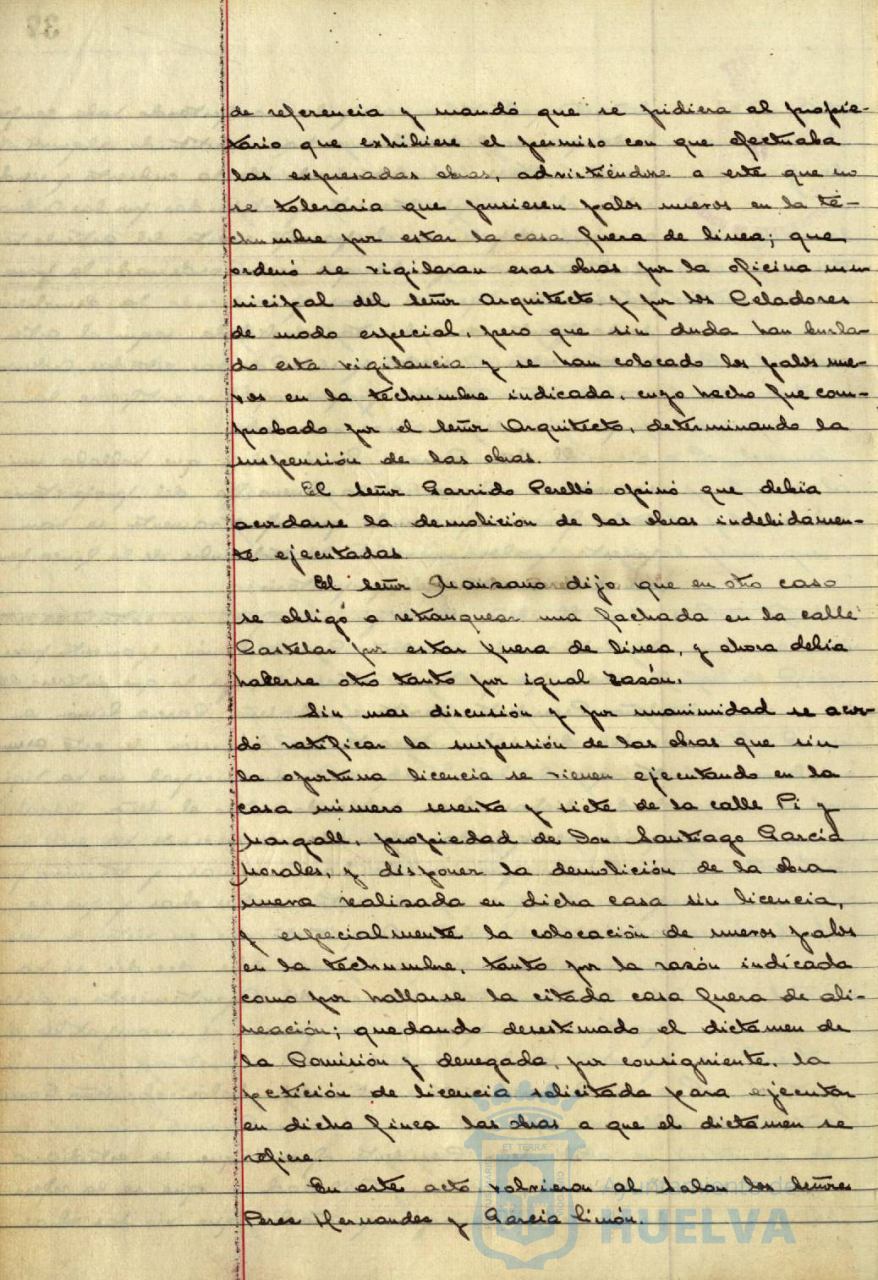 de referencia y mandó que se pidiera al propie-
tario que exhibiese el permiso con que efectuaba
las expresadas obras, advirtiéndose a este que no
se toleraria que pusiesen palos nuevos en la te-
chumbre por estar la casa fuera de linea; que
ordenó se vigilaran esas obras por la oficina mu-
nicipal del señor Arquitecto y por los Celadores
de modo especial, pero que sin duda han burla-
do esta vigilancia y se han colocado los palos nue-
vos en la techumbre indicada, cuyo hecho fue com-
probado por el señor Arquitecto, determinando la
suspensión de las obras.
El señor Garrido Perelló opinó que debia
acordarse la demolición de las obras indebidamen-
te ejecutadas
El señor Manzano dijo que en otro caso
se obligó a retranquear una fachada en la calle
Castelar por estar fuera de linea, y ahora debia
haberse otro tanto por igual razón.
Sin mas discusión y por unanimidad se acor-
dó ratificar la suspensión de las obras que sin
la oportuna licencia se vienen ejecutando en la
casa número sesenta y siete de la calle Pi y
Margall, propiedad de Don Santiago García
Morales, y disponer la demolición de la obra
nueva realizada en dicha casa sin licencia,
y especialmente la colocación de nuevos palos
en la techumbre, tanto por la razón indicada
como por hallarse la citada casa fuera de ali-
neación; quedando desestimado el dictamen de
la Comisión y denegada, por consiguiente, la
petición de licencia solicitada para ejecutar
en dicha finca las obras a que el dictamen se
refiere.
En este acto volvieron al Salon los señores
Perez Hernandez y García Limón.
HUELVA